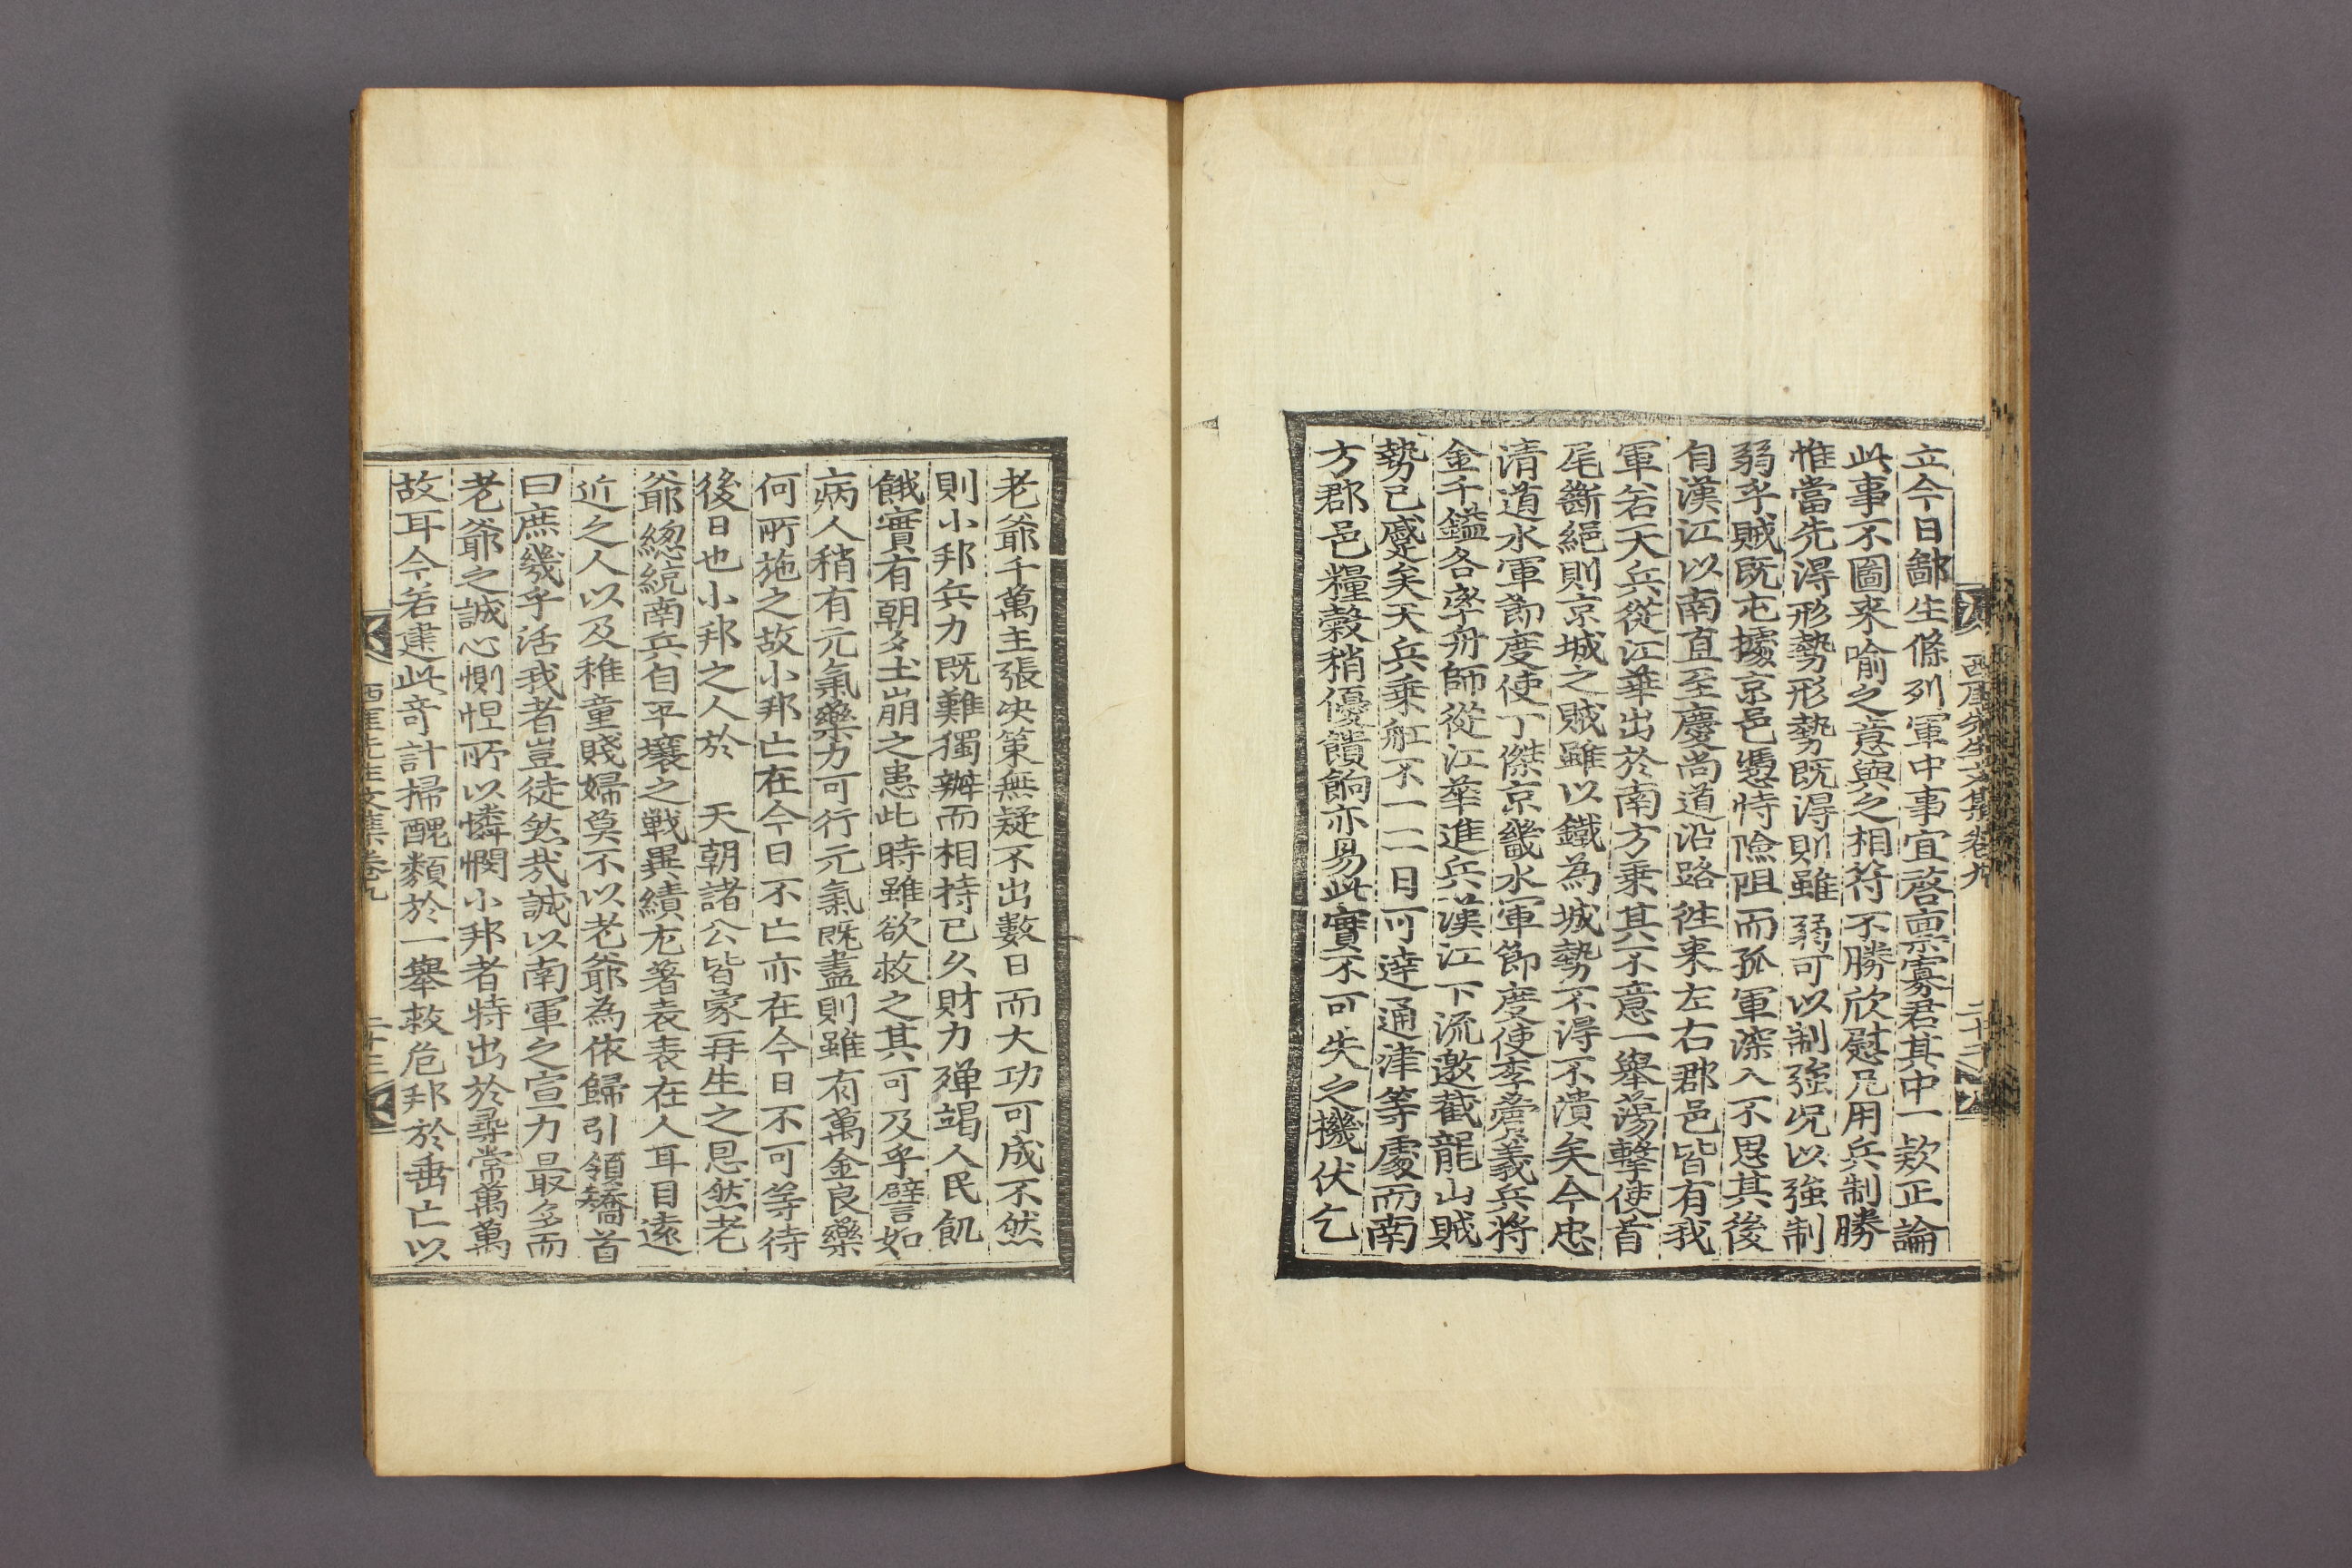 西厓先生文集卷九
二十二
立今日鄙生條列軍中事宜啓稟寡君其中一款正論
此事不圖来喻之意與之相符不勝欣慰凡用兵制勝
惟當先得形勢形勢既得則雖弱可以制強况以強制
弱乎賊既屯據京邑憑恃險阻而孤軍深入不思其後
自漢江以南直至慶尚道沿路徃来左右郡邑皆有我
軍若大兵從江華出於南方乗其不意一擧蕩擊使首
尾斷絕則京城之賊雖以鐵為城勢不得不潰矣今忠
清道水軍節度使丁傑京畿水軍節度使李薲義兵將
金千鎰各率舟師從江華進兵漢江下流邀截龍山賊
勢已蹙矣天兵乗舡不一二日可達通津等處而南
方郡邑糧穀稍優饋餉亦易此實不可失之機伏乞
老爺千萬主張决策無疑不出數日而大功可成不然
則小邦兵力既難獨辦而相持已久財力殫竭人民飢
餓實有朝夕土崩之患此時雖欲救之其可及乎譬如
病人稍有元氣藥力可行元氣既盡則雖有萬金良藥
何所施之故小邦亡在今日不亡亦在今日不可等待
後日也小邦之人於 天朝諸公皆蒙再生之恩然老
爺緫統南兵自平壤之戰異績尤著表表在人耳目遠
近之人以及稚童賤婦莫不以老爺為依歸引領矯首
曰庶幾乎活我者豈徒然哉誠以南軍之宣力最多而
老爺之誠心惻怛所以憐憫小邦者特出於尋常萬萬
故耳今若建此竒計掃醜類於一擧救危邦於垂亡以
西厓先生文集卷九
二十三